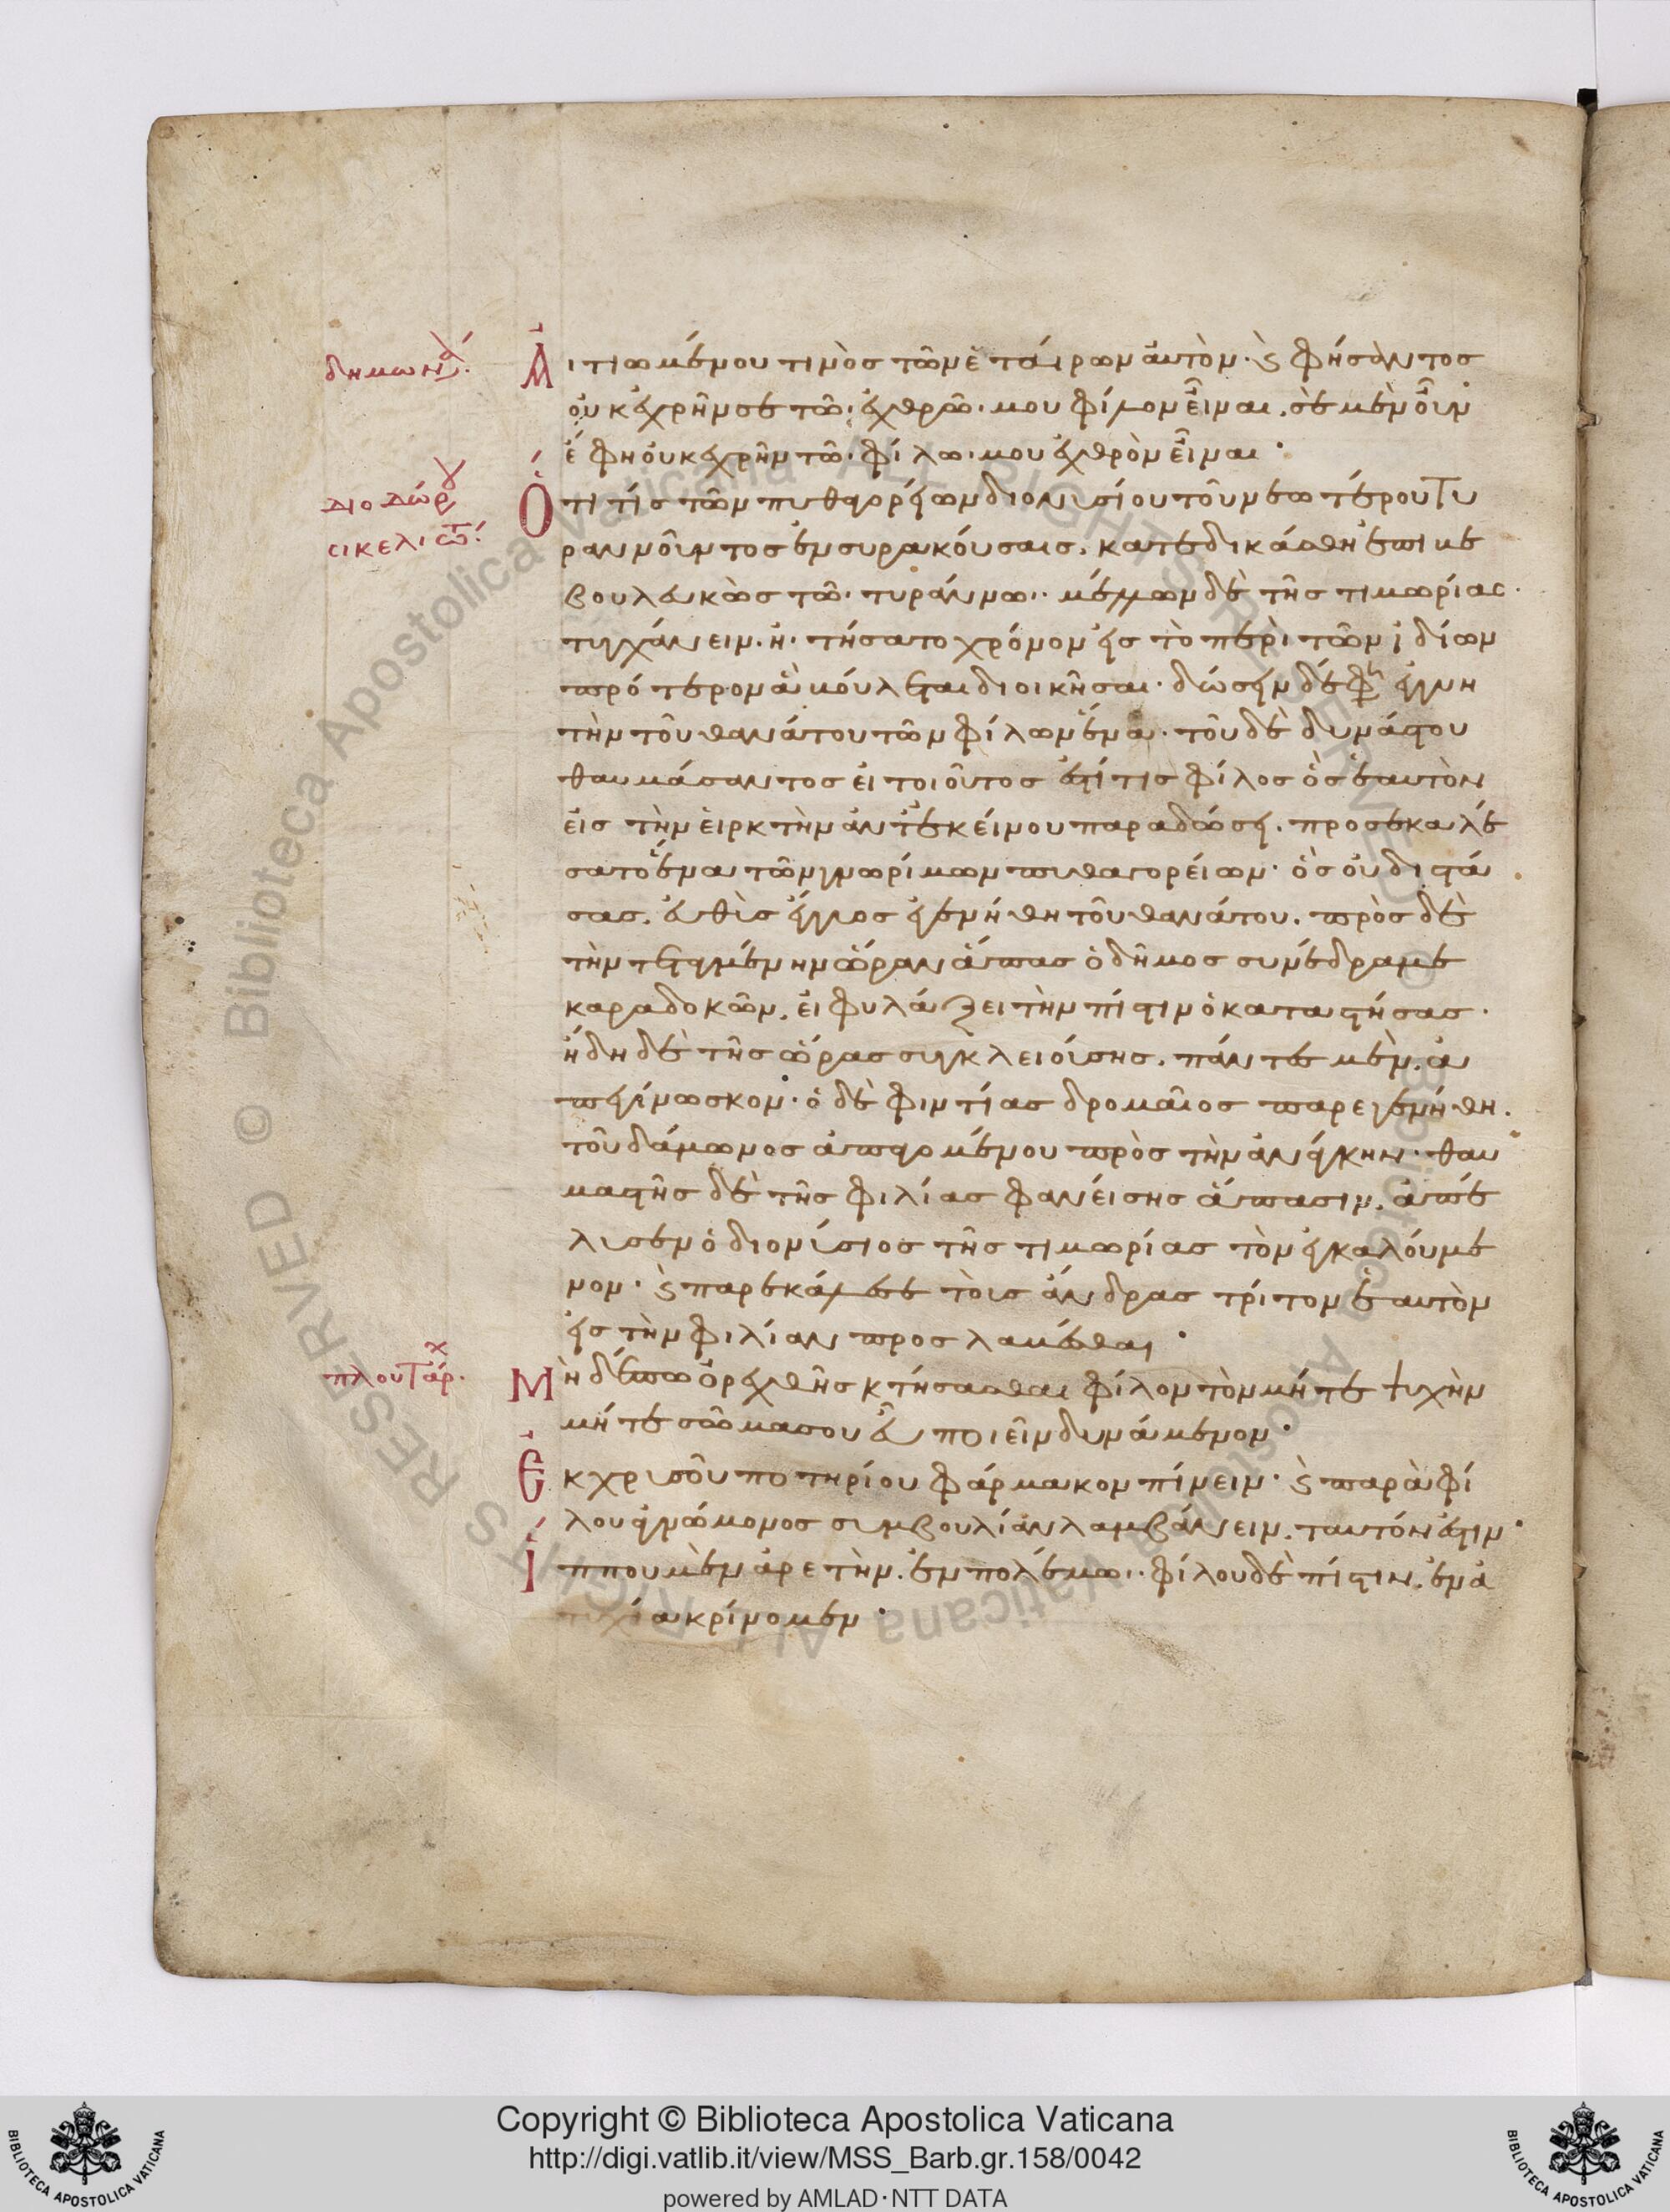 δημώνα.
Αἰτιωμένου τινὸς τῶν ἑταίρων αὐτὸν· καὶ φήσαντος
οὐκ ἐχρῆν σε τῶ ἐχθρῶ μου φίλον εἶναι. σὲ μὲν οὖν
ἔφη οὐκ ἐχρῆν τῶ φίλω μου ἐχθρὸν εἶναι·
διοδώρου
σικελιώτ
Ὅτι τίς τῶν πυθαγορείων διονυσίου τοῦ νεωτέρου τυ
ραννοῦντος ἐν συρακούσαις. κατεδικάσθη ἐπιβε
βουλευκὼς τῶ τυράννω· μέλλων δὲ τῆς τιμωρίας
τυγχάνειν. ἠτήσατο χρόνον εἰς τὸ περὶ τῶν ἰδίων
πρότερον ἃ βούλεται διοικῆσαι· δώσειν δ' ἔφη ἐγγυη
τὴν τοῦ θανάτου τῶν φίλων ἕνα· τοῦ δὲ δυνάστου
θαυμάσαντος εἰ τοιοῦτος ἐστί τις φίλος ὃς ἑαυτὸν
εἰς τὴν εἱρκτὴν ἀντ' ἐκείνου παραδώσει. προσεκαλέ
σατο ἕνα τῶν γνωρίμων πυθαγορείων· ὃς οὐ διστά
σας. εὐθὺς ἔγγυος ἐγενήθη τοῦ θανάτου. πρὸς δὲ
τὴν τεταγμένην ὥραν ἅπας ὁ δῆμος συνέδραμε
καραδοκῶν. εἰ φυλάξει τὴν πίστιν ὁ καταστήσας·
ἤδη δὲ τῆς ὥρας συγκλειούσης. πάντες μὲν. ἀ
πεγίνωσκον· ὁ δὲ φιντίας δρομαῖος παρεγενήθη.
τοῦ δάμωνος ἀπαγομένου πρὸς τὴν ἀνάγκην· θαυ
μαστῆς δὲ τῆς φιλίας φανείσης ἅπασιν. ἀπέ
λυσεν ὁ διονύσιος τῆς τιμωρίας τὸν ἐγκαλούμε
νον· καὶ παρεκάλεσε τοὺς ἄνδρας τρίτον ἑαυτὸν
εἰς τὴν φιλίαν προσλαβέσθαι·
πλουτάρχ.
Μηδέπω ὀρεχθῆς κτήσασθαι φίλον τὸν μήτε ψυχὴν
μήτε σῶμα σου εὖ ποιεῖν δυνάμενον·
Ἐκ χρυσοῦ ποτηρίου φάρμακον πίνειν· καὶ παρὰ φί
λου ἀγνώμονος συμβουλίαν λαμβάνειν. ταυτόν ἐστιν·
Ἵππου μὲν ἀρετὴν. ἐν πολέμω· φίλου δὲ πίστιν. ἐν ἀ
τυχία κρίνομεν·
Copyright © Biblioteca Apostolica Vaticana
http://digi.vatlib.it/view/MSS_Barb.gr.158/0042
powered by AMLAD·NTT DATA